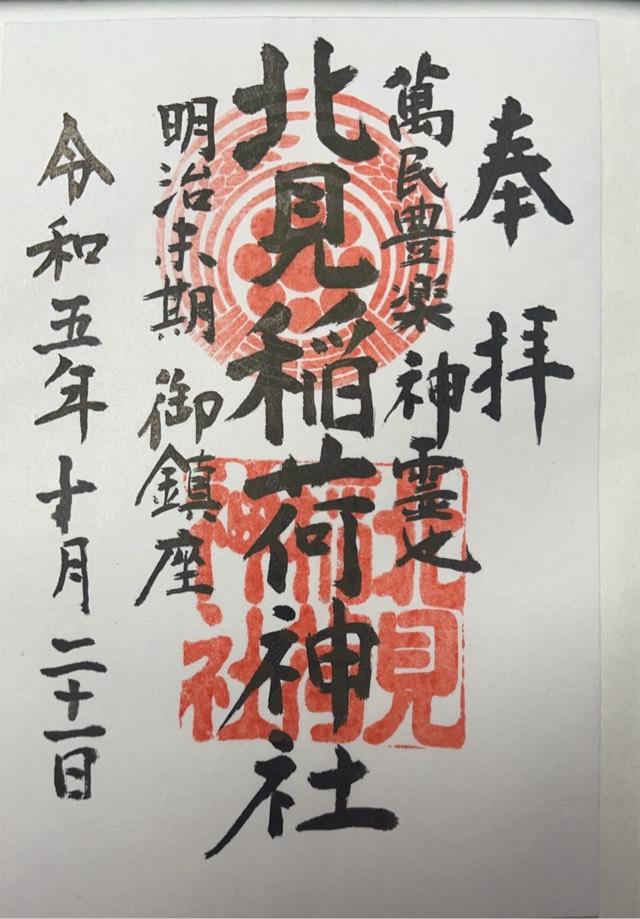 奉拝
萬民豊楽 神霊也
北見稲荷神社
明治末期 御鎮座
令和五年十月二十一日
北見
稲荷
神社